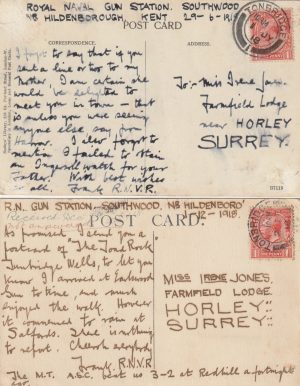 ROYAL NAVAL GUN STATION. SOUTHWOOD
NB HILDENBOROUGH. KENT. 29-6-191
POST CARD
CORRESPONDENCE.
ADDRESS.
TONBRIDGE
I forgot to say that if you
sent a line or two to my
Mother I am certain she
would be delighted to
meet you in town - that
is unless you were seeing
anyone else say from
Harrow. I also forgot to
mention I failed to obtain
an Ingersoll watch for your
father. With best wishes
to all. Frank R.N.V.R.
To:- Miss Irene Jones.
Farmfield Lodge
near HORLEY
SURREY.
R.N. GUN STATION. SOUTHWOOD, NB HILDENBORO'
1-12-1918.
POST CARD.
As promised I send you a
postcard of "The Toad Rock"
Tunbridge Wells, to let you
know I arrived at
Gun to time, and much
enjoyed the walk. However
it commenced to rain at
Salfords. There is nothing
to report. Cheerioh everybody
Frank. R.N.V.R.
The M.T. A.S.C. beat us 3-2 at Redhill a fortnight
ago.
MISS IRENE JONES.
FARMFIELD LODGE.
HORLEY
SURREY.